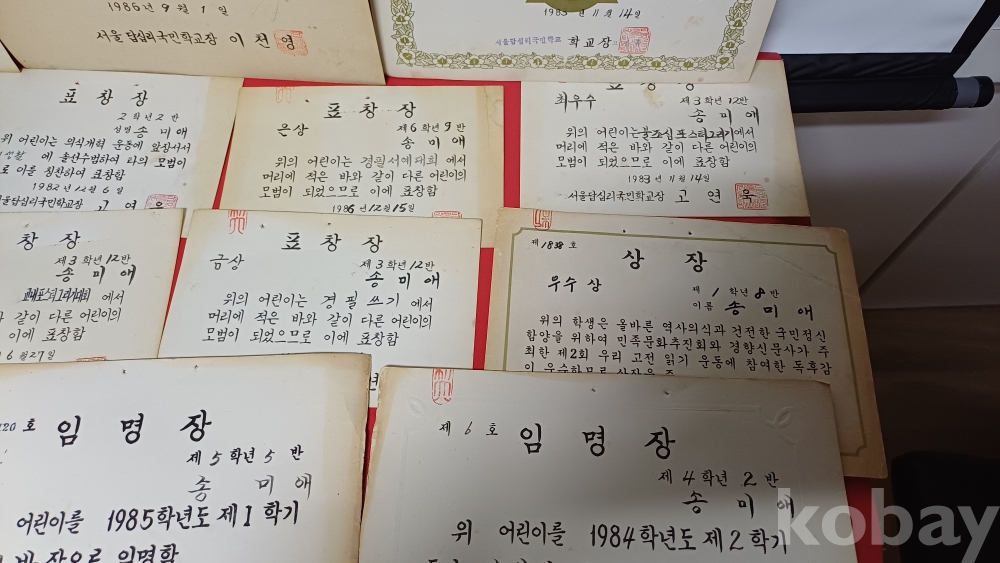 1986년 9월 1일
서울답십리국민학교장 이천영
1983년 11월 14일
서울답십리국민학교 학교장
표창장
2학년 2반
성명 송미애
위 어린이는 의식개혁 운동에 앞장서서
에 솔선수범하여 타의 모범이
로 이을 칭찬하여 표창함
1982년 12월 6일
서울답십리국민학교장 고연욱
표창장
은상 제6학년 9반
송미애
위의 어린이는 경필서예대회 에서
머리에 적은 바와 같이 다른 어린이의
모범이 되었으므로 이에 표창함
1986년 12월 15일
표창장
최우수 제3학년 12반
송미애
위의 어린이는 불조심포스터그리기에서
머리에 적은 바와 같이 다른 어린이의
모범이 되었으므로 이에 표창함
1983년 11월 14일
서울답십리국민학교장 고연욱
창장
제3학년 12반
송미애
에서
바와 같이 다른 어린이의
으므로 이에 표창함
6월 27일
표창장
금상 제3학년 12반
송미애
위의 어린이는 경필쓰기 에서
머리에 적은 바와 같이 다른 어린이의
모범이 되었으므로 이에 표창함
제 1838 호
상장
우수상 제 1 학년 8 반
이름 송미애
위의 학생은 올바른 역사의식과 건전한 국민정신
함양을 위하여 민족문화추진회와 경향신문사가 주
최한 제2회 우리 고전 읽기 운동에 참여한 독후감
이 우수하므로 상장을 줌
120 호 임명장
제 5 학년 5 반
송미애
어린이를 1985학년도 제1학기
반장으로 임명함
제 6 호 임명장
제 4 학년 2 반
송미애
위 어린이를 1984학년도 제2학기
kobay